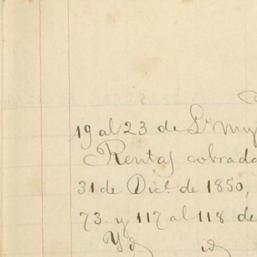 19 al 23 de
Rentas cobrada
31 de Dic.e de 1850,
73 y 117 al 118 de
Yd id